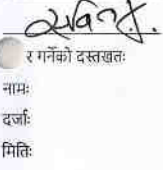 र गर्नेको दस्तखतः
नामः
दर्जाः
मितिः